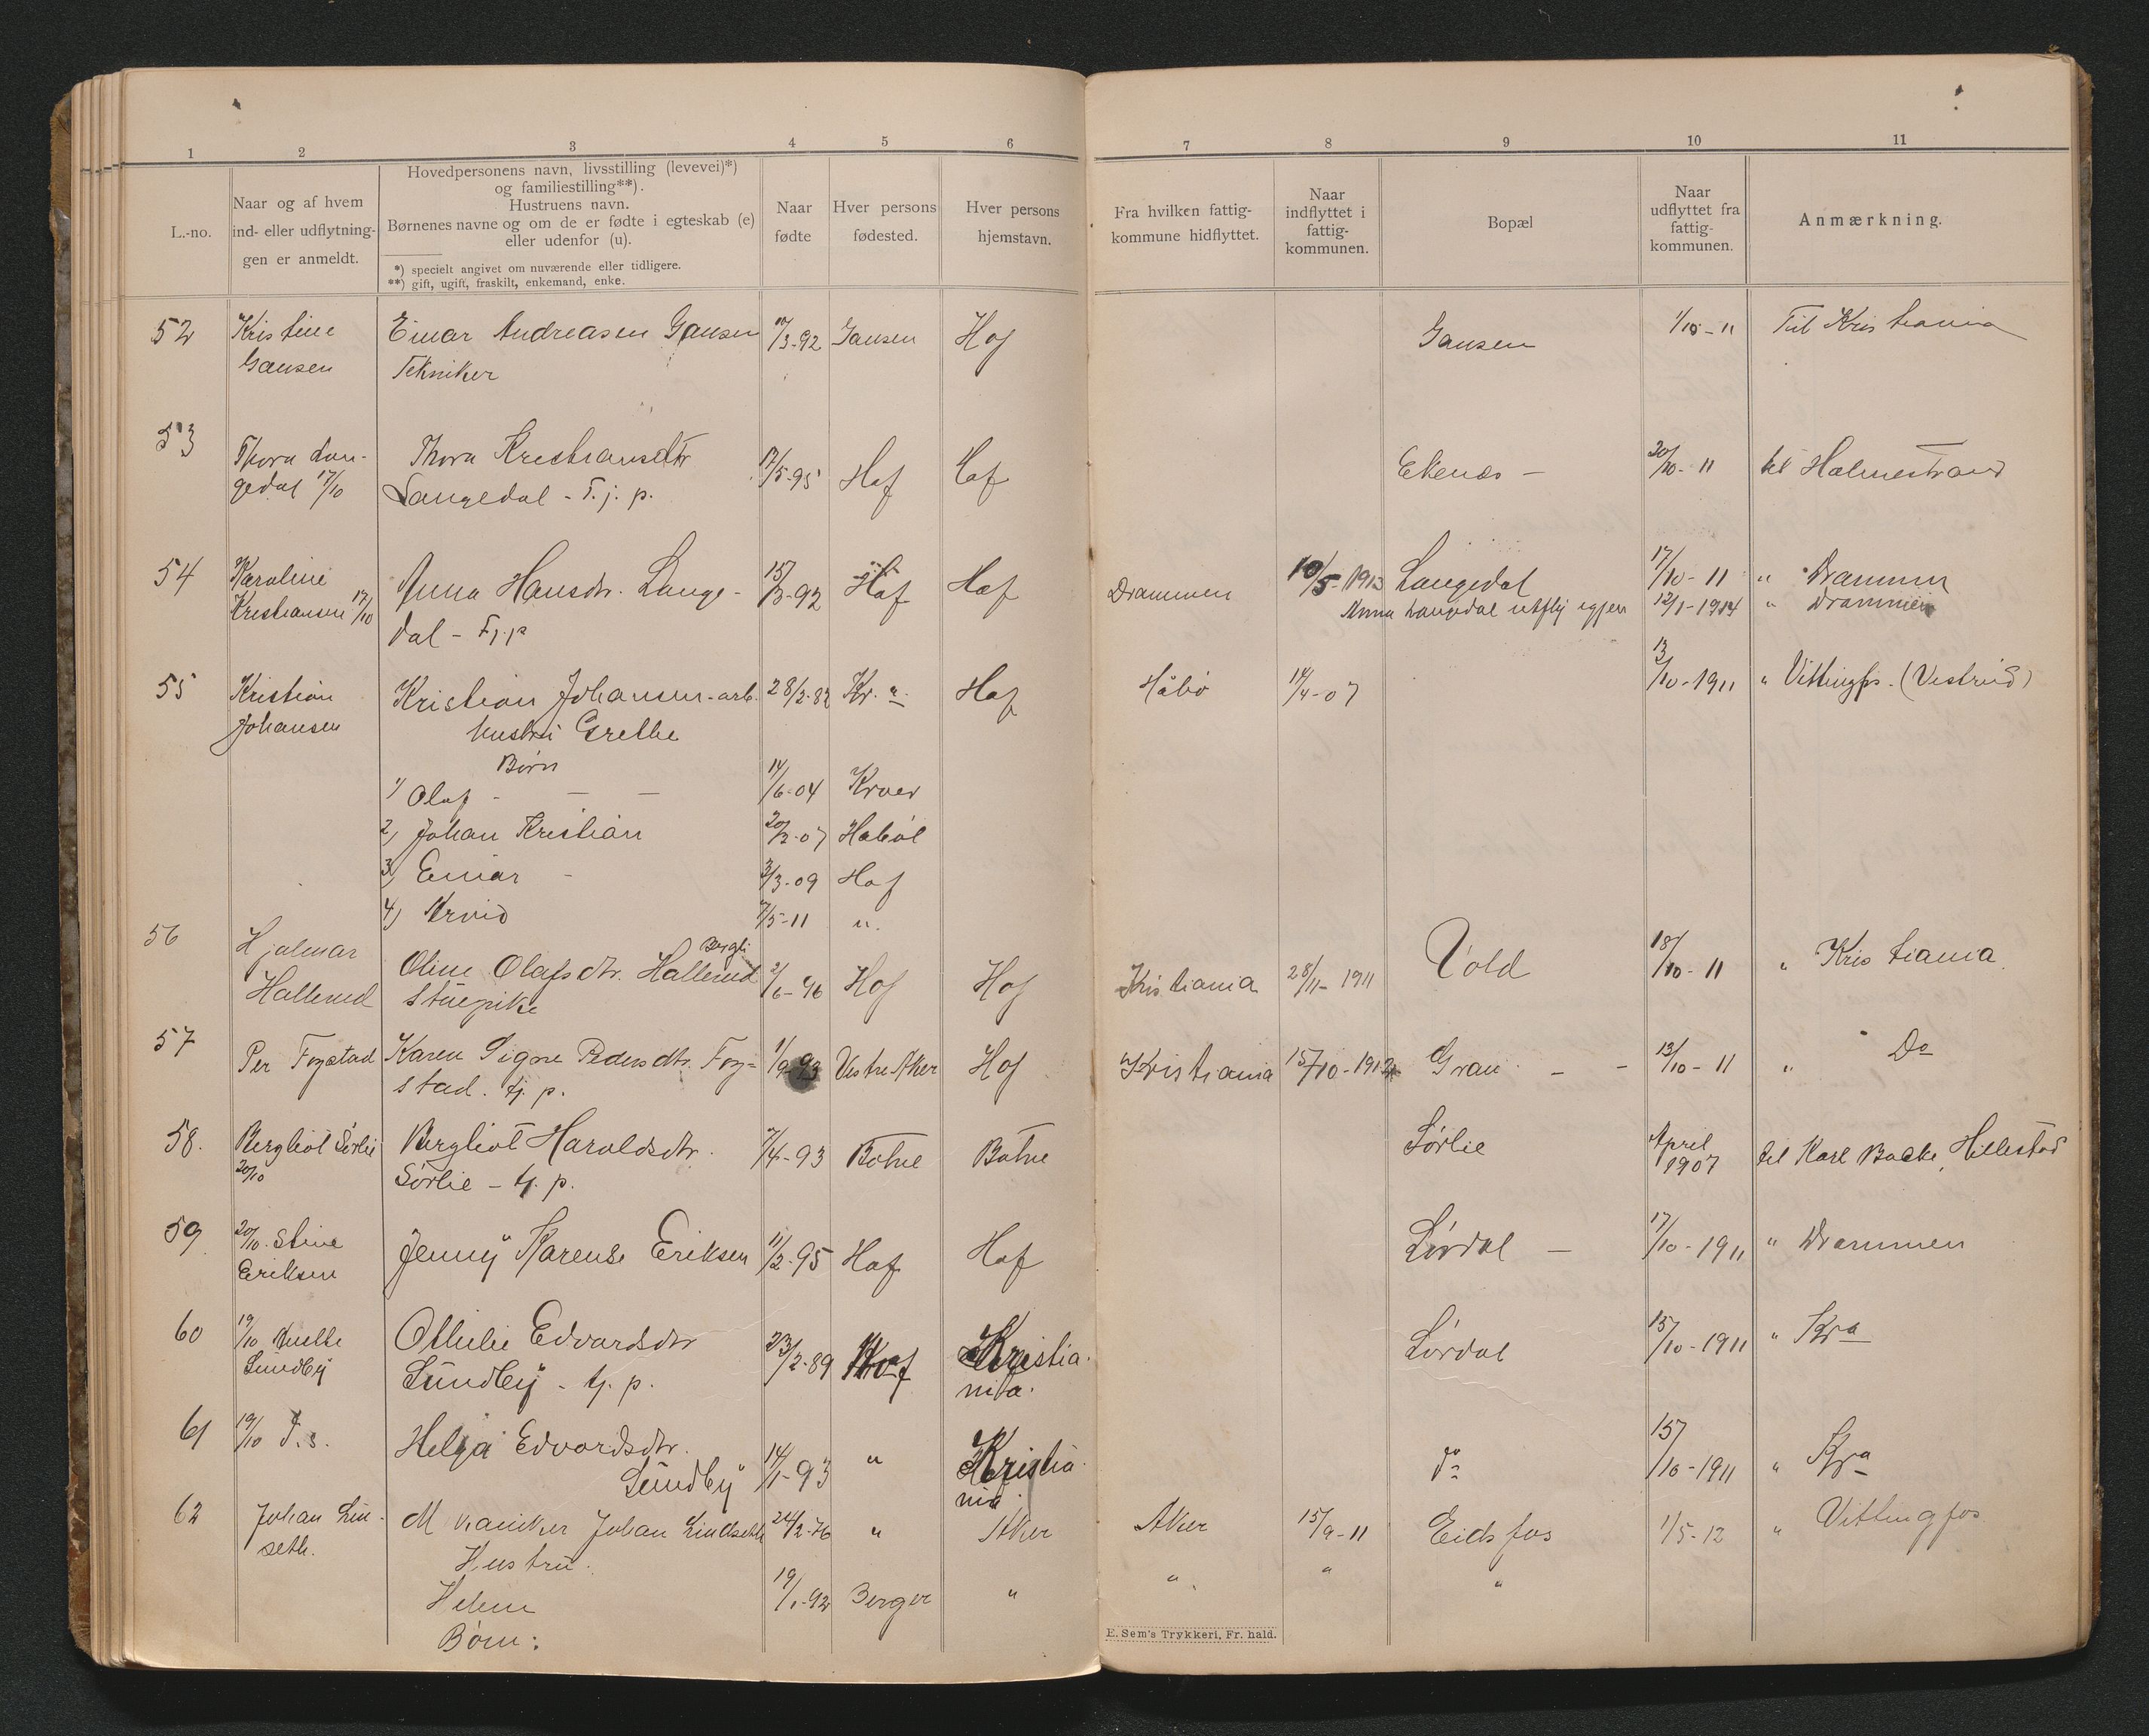 1 2 3 4 5 6 7 8 9 10 11
L.-no.
Naar og af hvem
ind- eller udflytning-
gen er anmeldt.
Hovedpersonens navn, livsstilling (levevei)*)
og familiestilling**).
Hustruens navn.
Børnenes navne og om de er fødte i egteskab (e)
eller udenfor (u).
*) specielt angivet om nuværende eller tidligere.
**) gift, ugift, fraskilt, enkemand, enke.
Naar
fødte
Hver persons
fødested.
Hver persons
hjemstavn.
Fra hvilken fattig-
kommune hidflyttet.
Naar
indflyttet i
fattig-
kommunen.
Bopæl
Naar
udflyttet fra
fattig-
kommunen.
Anmærkning.
52 Kristine Einar Andreasen Gausen 17/3-92 Gausen Hof Gausen 1/10-11 Til Kristiania
Gausen Tekniker
53 Thora Lan- Thora Kristiansdtr 17/5-95 Hof Hof Ekenæs — 20/10-11 til Holmestrand
gedal 17/10 Langedal - T.j.p.
54 Karoline Anna Hansdtr. Lange- 15/3-92 Hof Hof Drammen 10/5-1913 Langedal 17/10-11 " Drammen
Kristiansen 17/10 dal - Tj.p Anna Langedal utflý igjen 12/1-1914 " Drammen
55 Kristian Kristian Johansen - arb. 28/2-82 Kr.a Hof Håbø 14/4-07 13/10-1911 " Vittingfs. (Vestrud)
Johansen hustru Grethe
Børn
1) Olaf - — — 14/6-04 Kroer
2) Johan Kristian 20/2-07 Habøl
3) Einar - 3/3-09 Hof
4) Arvid 7/5-11 "
56 Hjalmar Oline Olafsdtr. Hallerud 2/6-96 Hof Hof Kristiania 28/11-1911 Vold 18/10-11 " Kristiania
Hallerud Stuepike
57 Per Fogstad Karen Signe Pedersdtr. Fog- 1/9-93 Vestre Aker Hof Kristiania 15/10-1912 Grau - - 13/10-11 " Do
stad. tj. p.
58. Bergliot Sørlie Bergliot Haroldsdtr. 7/4-93 Botne Botne Sørlie April til Karl Backe, Hillestad
20/10 Sørlie - tj. p. 1907
59 20/10. Stine Jenny Karense Eriksen 11/2-95 Hof Hof Lørdal — 17/10-1911 " Drammen
Eriksen
60 19/10 Othilie Edvardsdtr 23/2-89 Hof Kristia- Lørdal 15/10-1911 " Kra
Sundby Sundby - tj. p. nia.
61 19/10 d.s. Helga Edvardsdtr. 14/1-93 " Kristia- do 15/10-1911 " Kra
Sundby nia.
62 Johan Lin- Mekaniker Johan Lindseth 24/2-76 " Aker Aker 15/9-11 Eidsfos 1/5-12 " Vittingfos
seth. Hustru. " " "
Helene 19/1-92 Berger "
Børn:
E. Sem's Trykkeri, Fr. hald.